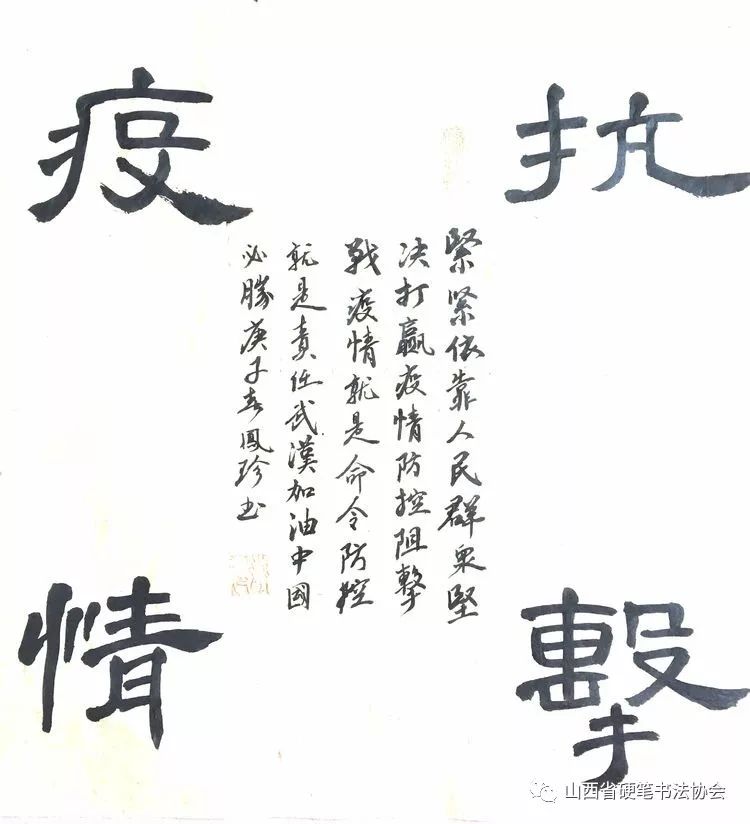 抗擊
疫情
緊緊依靠人民群衆堅
决打贏疫情防控阻擊
戰疫情就是命令防控
就是責任武漢加油中國
必勝庚子春鳳珍书
山西省硬笔书法协会